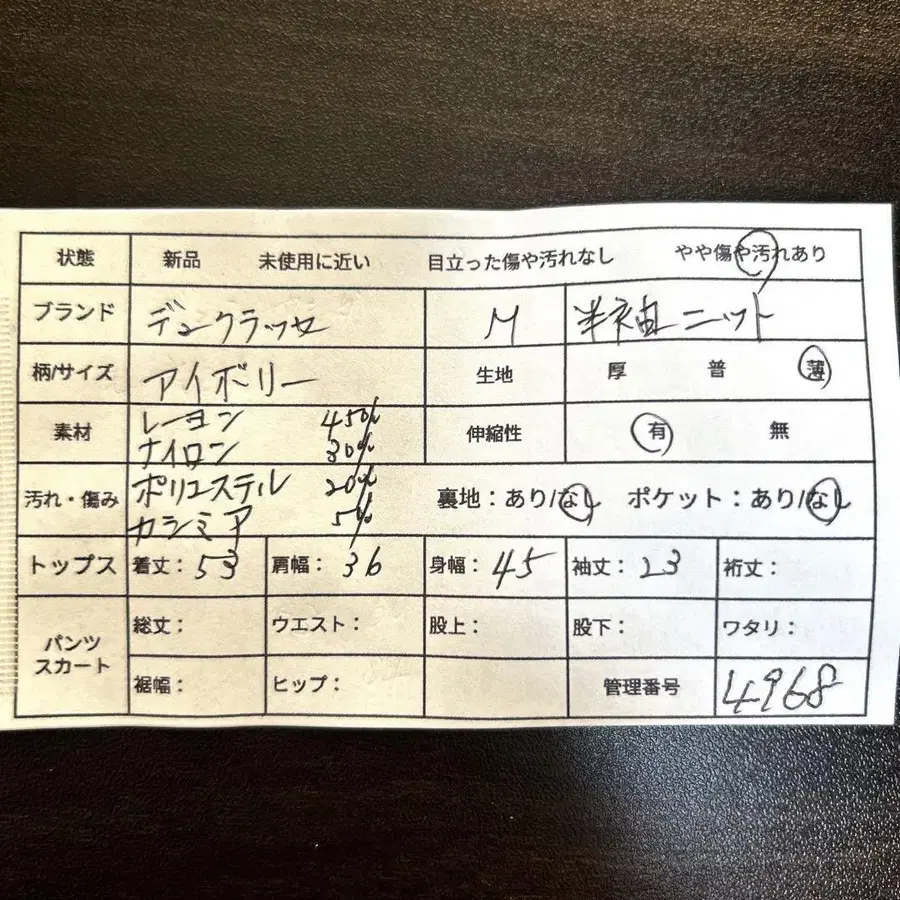 状態 新品 未使用に近い 目立った傷や汚れなし やや傷や汚れあり
ブランド デュクラッセ M 半袖ニット
柄/サイズ アイボリー 生地 厚 普 薄
素材 レーヨン 45% 伸縮性 有 無
ナイロン 30%
汚れ・傷み ポリエステル 20% 裏地：あり/なし ポケット：あり/なし
カシミア 5%
トップス 着丈：53 肩幅：36 身幅：45 袖丈：23 裄丈：
パンツ スカート 総丈： ウエスト： 股上： 股下： ワタリ：
裾幅： ヒップ： 管理番号 4968